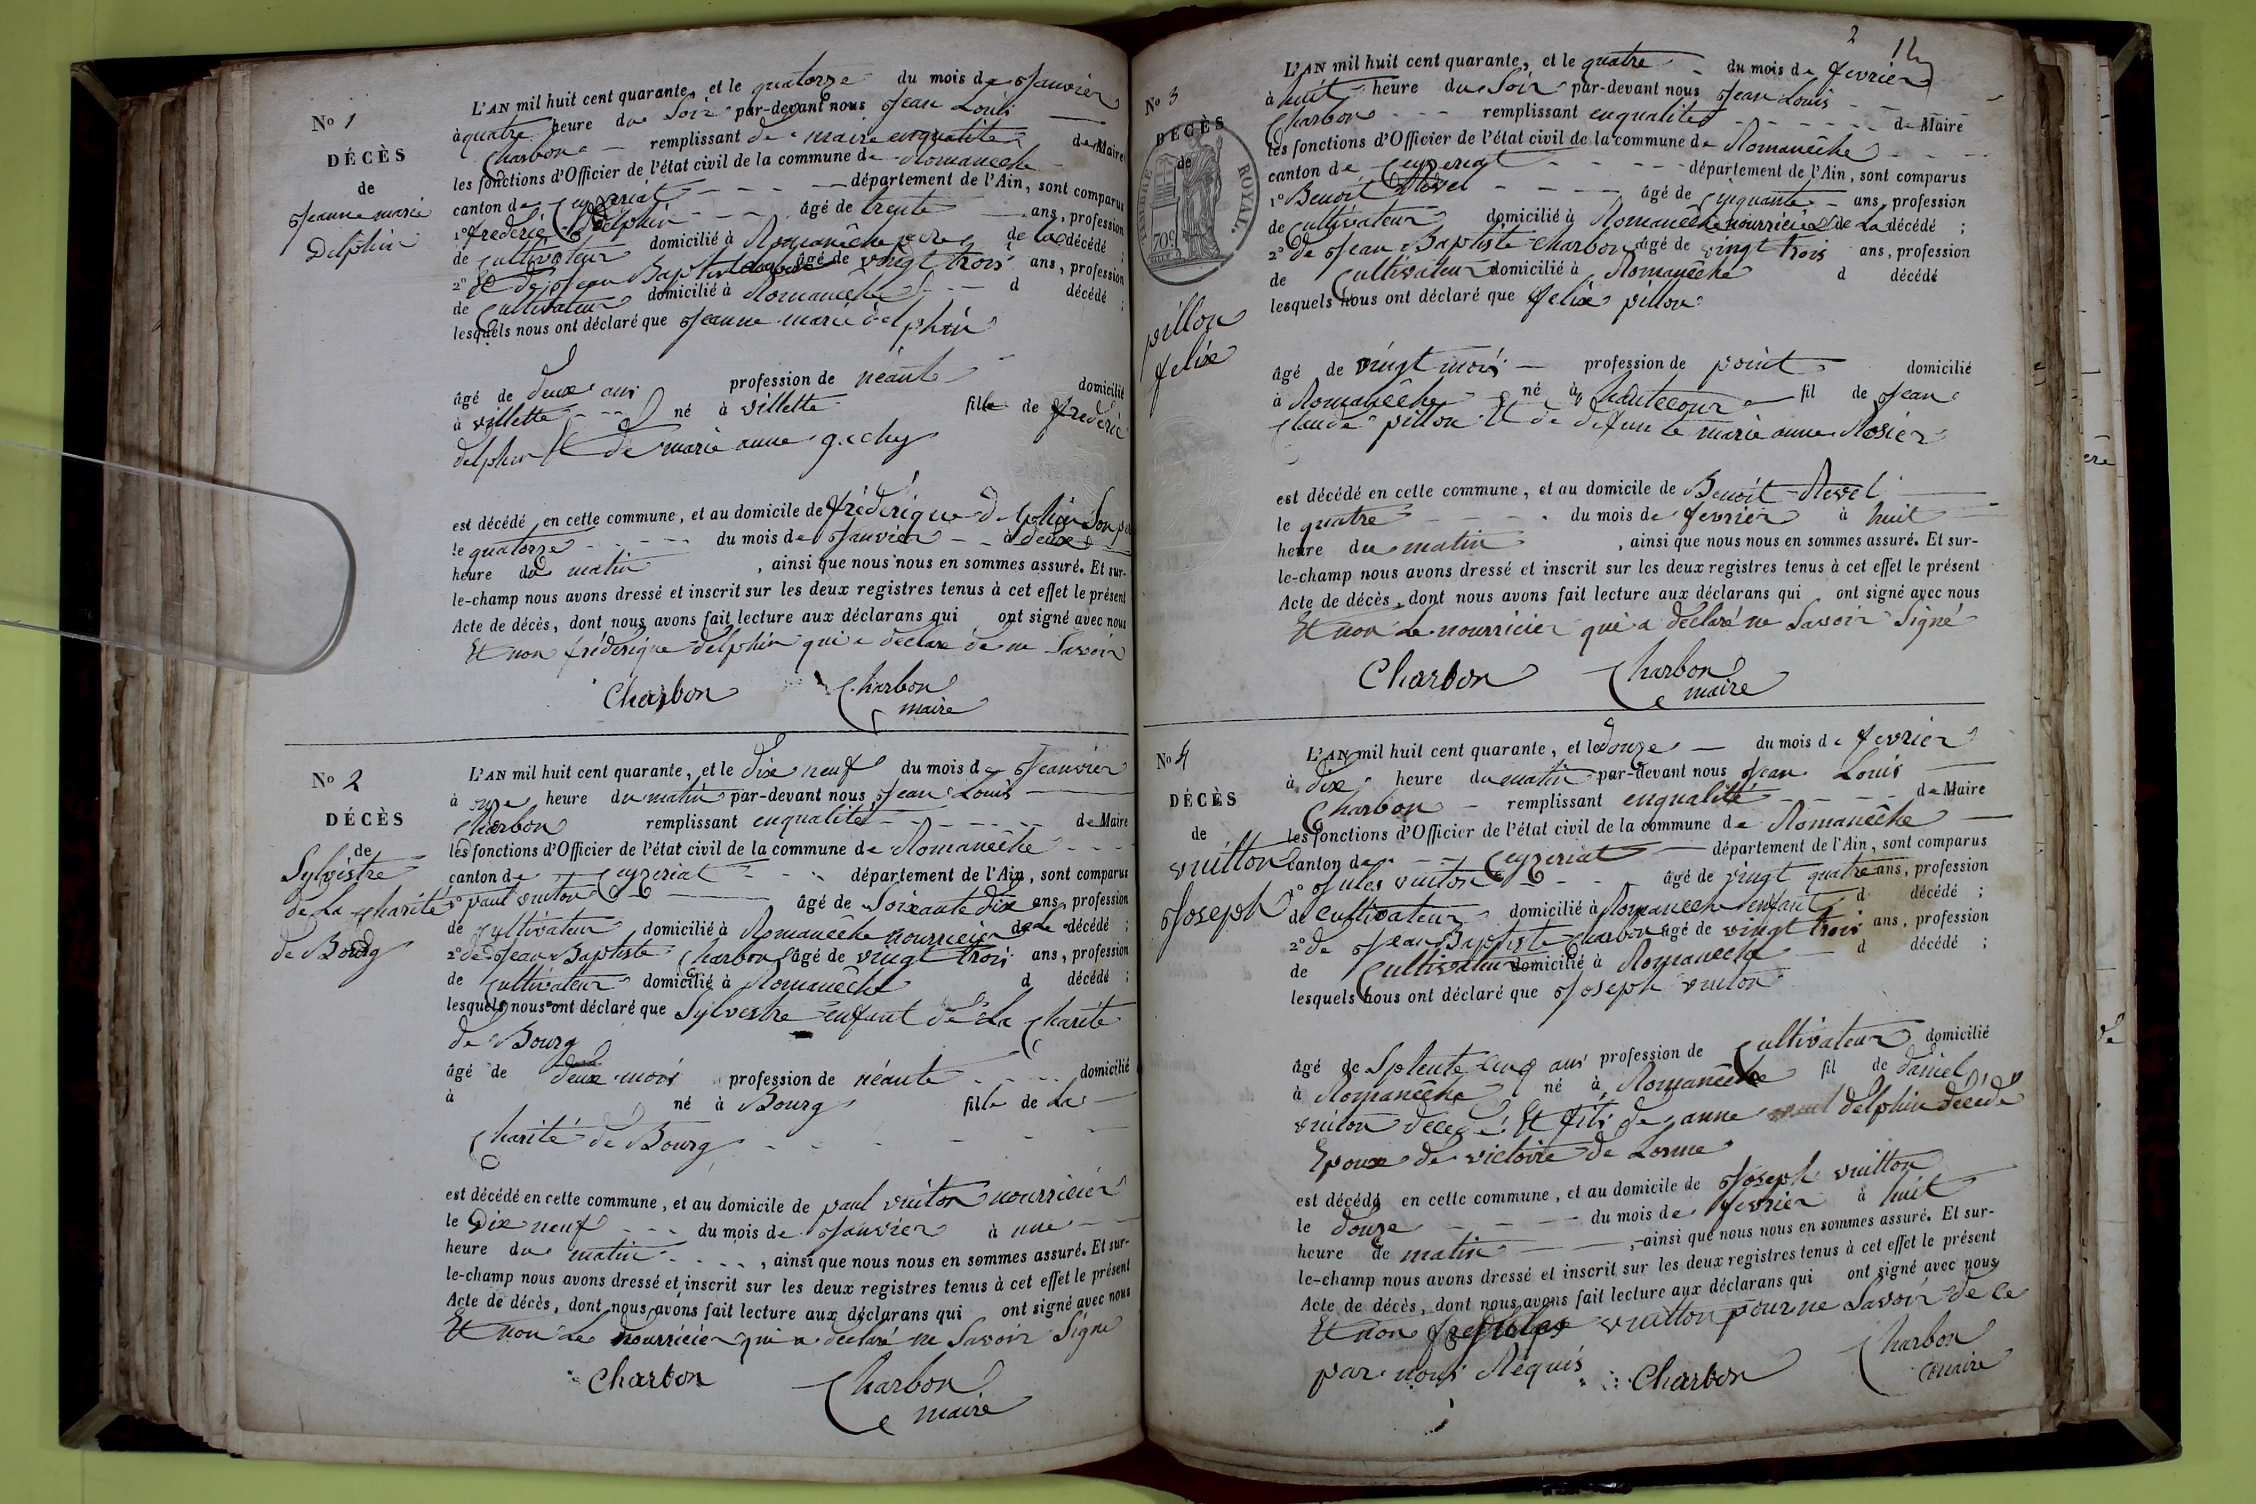 No 1
DÉCÈS
de
Jeanne marie
Delphin
L'AN mil huit cent quarante, et le quatorze du mois de Janvier
à quatre heure du Soir par-devant nous Jean Louis
Charbon remplissant de maire enqualité de Maire
les fonctions d'Officier de l'état civil de la commune de Romanêche
canton de Ceyzeriat département de l'Ain, sont comparus
1° frederic Delphin âgé de trente ans, profession
de Cultivateur domicilié à Romanêche pere de la décédé ;
2° Et de Jean Baptiste Charbon âgé de vingt trois ans, profession
de Cultivateur domicilié à Romanêche d décédé ;
lesquels nous ont déclaré que Jeanne marie delphin
âgé de deux ans profession de néante domicilié
à villette né à villette fille de frederic
delphin Et de marie anne
est décédé en cette commune, et au domicile de frédérique delphin Son
le quatorze du mois de Janvier à deux
heure du matin , ainsi que nous nous en sommes assuré. Et sur-
le-champ nous avons dressé et inscrit sur les deux registres tenus à cet effet le présent
Acte de décès, dont nous avons fait lecture aux déclarans qui ont signé avec nous
Et non frédérique delphin qui a declare de ne Savoir
Charbon Charbon
maire
No 2
DÉCÈS
de
Sylvestre
de La Charité
de Bourg
L'AN mil huit cent quarante, et le dix neuf du mois de Jeanvier
à onze heure du matin par-devant nous Jean Louis
Charbon remplissant enqualité de Maire
les fonctions d'Officier de l'état civil de la commune de Romanêche
canton de Ceyzeriat département de l'Ain, sont comparus
1° paul vuiton âgé de Soixante dix ans, profession
de Cultivateur domicilié à Romanêche nourricier de le décédé ;
2° de Jean Baptiste Charbon âgé de vingt trois ans, profession
de Cultivateur domicilié à Romanêche d décédé ;
lesquels nous ont déclaré que Sylvestre enfant de La Charité
de Bourg
âgé de deux mois profession de néante domicilié
à né à Bourg fille de La
Charité de Bourg
est décédé en cette commune, et au domicile de paul vuiton nourricier
le Dix neuf du mois de Janvier à une
heure du matin , ainsi que nous nous en sommes assuré. Et sur-
le-champ nous avons dressé et inscrit sur les deux registres tenus à cet effet le présent
Acte de décès, dont nous avons fait lecture aux déclarans qui ont signé avec nous
Et non Le nourricier qui a déclaré ne Savoir Signe
Charbon Charbon
maire
2 12
No 3
DÉCÈS
de
TIMBRE ROYAL
70c
pillon
felix
L'AN mil huit cent quarante, et le quatre du mois de fevrier
à huit heure du Soir par-devant nous Jean Louis
Charbon remplissant enqualité de Maire
les fonctions d'Officier de l'état civil de la commune de Romanêche
canton de Ceyzeriat département de l'Ain, sont comparus
1° Benoit Revel âgé de Cinquante ans, profession
de Cultivateur domicilié à Romanêche nourricier de La décédé ;
2° de Jean Baptiste Charbon âgé de vingt trois ans, profession
de Cultivateur domicilié à Romanêche d décédé
lesquels nous ont déclaré que felix pillon
âgé de vingt mois profession de point domicilié
à Romanêche né à hautecour fil de Jean
Claude pillon Et de defunte marie anne Rosier
est décédé en cette commune, et au domicile de Benoit Revel
le quatre du mois de fevrier à huit
heure du matin , ainsi que nous nous en sommes assuré. Et sur-
le-champ nous avons dressé et inscrit sur les deux registres tenus à cet effet le présent
Acte de décès, dont nous avons fait lecture aux déclarans qui ont signé avec nous
Et non Le nourricier qui a déclaré ne Savoir Signé
Charbon Charbon
maire
No 4
DÉCÈS
de
vuitton
Joseph
L'AN mil huit cent quarante, et le douze du mois de fevrier
à dix heure du matin par-devant nous Jean Louis
Charbon remplissant enqualité de Maire
les fonctions d'Officier de l'état civil de la commune de Romanêche
canton de Ceyzeriat département de l'Ain, sont comparus
1° Jules vuiton âgé de vingt quatre ans, profession
de Cultivateur domicilié à Romanêche enfant d décédé ;
2° de Jean Baptiste Charbon âgé de vingt trois ans, profession
de Cultivateur domicilié à Romanêche d décédé ;
lesquels nous ont déclaré que Joseph vuiton
âgé de Septente Cinq ans profession de Cultivateur domicilié
à Romanêche né à Romanêche fil de daniel
vuiton décédé Et fils de janne delphin décédé
Epoux de victoire de Lorme
est décédé en cette commune, et au domicile de Joseph vuitton
le douze du mois de fevrier à huit
heure de matin , ainsi que nous nous en sommes assuré. Et sur-
le-champ nous avons dressé et inscrit sur les deux registres tenus à cet effet le présent
Acte de décès, dont nous avons fait lecture aux déclarans qui ont signé avec nous
Et non vuitton pour ne Savoir de ce
par nous Réquis Charbon Charbon
maire